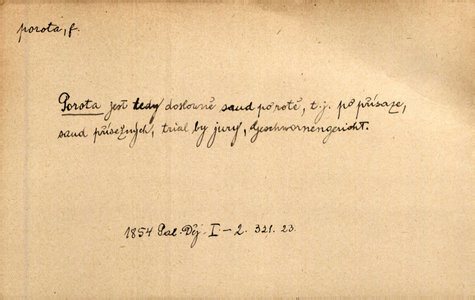 porota, f.
Porota jest tedy doslovně saud po rotě, t. j. po přísaze,
saud přísežných, trial by jury, Geschwornengericht.
1854 Pal. Děj. I-2. 321. 23.